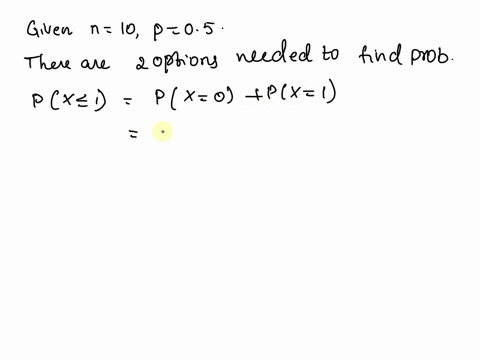 Given n = 10, p = 0.5.
There are 2 options needed to find prob.
P(X ≤ 1) = P(X = 0) + P(X = 1)
=